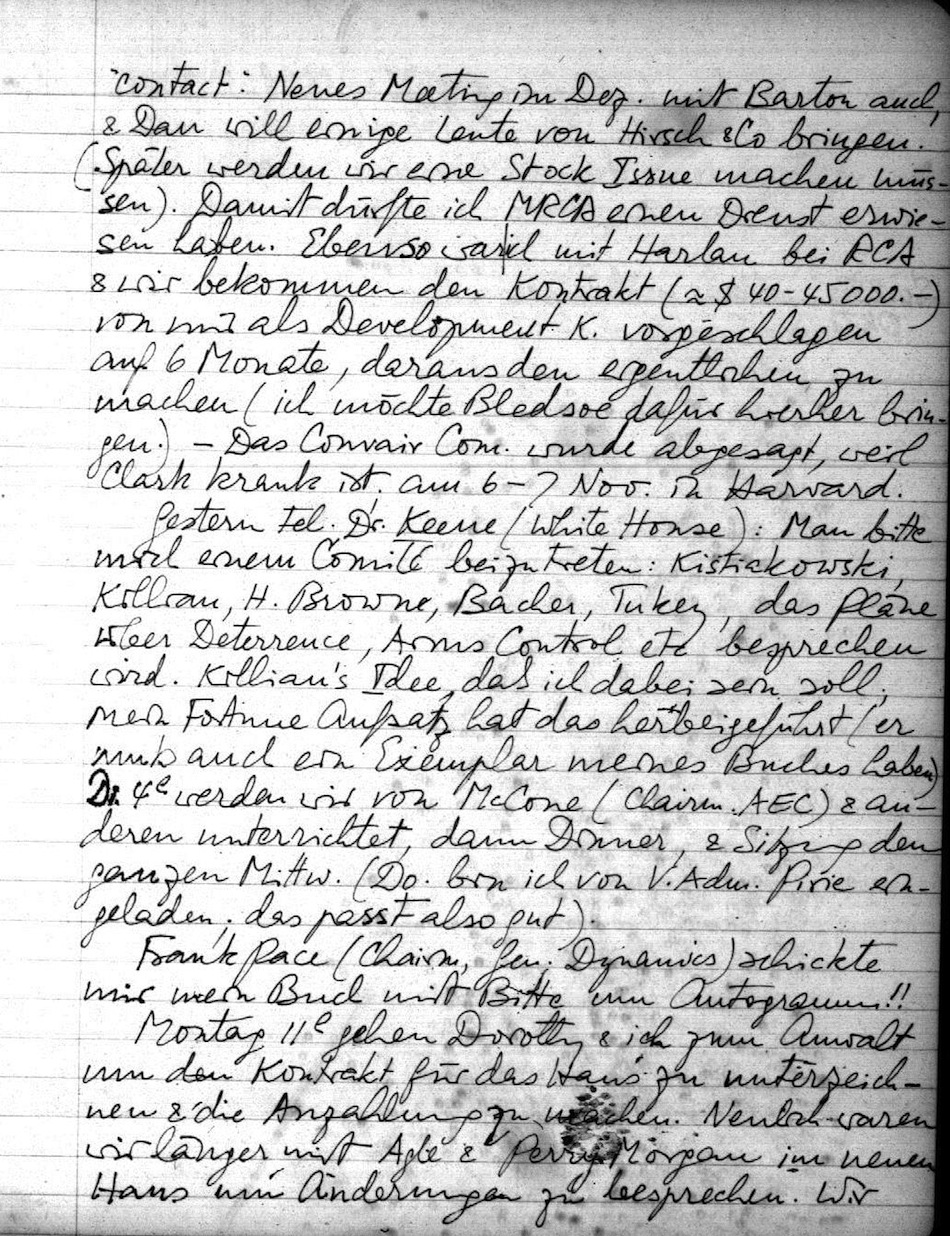 "contact": Neues Meeting im Dez. mit Barton auch,
& Dan will einige Leute von Hirsch & Co bringen.
(Später werden wir eine Stock Issue machen müs-
sen). Damit dürfte ich MRCA einen Dienst erwie-
sen haben. Ebenso war ich mit Harlan bei RCA
& wir bekommen den Kontrakt (≈ $ 40-45000.-)
von mir als Development K. vorgeschlagen
auf 6 Monate, daraus den eigentlichen zu
machen (ich möchte Bledsoe dafür hierher brin-
gen.) - Das Convair Com. wurde abgesagt, weil
Clark krank ist. am 6-7 Nov. in Harvard.
Gestern tel. Dr. Keene (White House): Man bitte
mich einem Comité beizutreten: Kistiakowski,
Killian, H. Browne, Bacher, Tukey, das Pläne
über Deterrence, Arms Control etc besprechen
wird. Killian's Idee, daß ich dabei sein soll;
mein Fortune Aufsatz hat das herbeigeführt (er
muß auch ein Exemplar meines Buches haben)
Di. 4e werden wir von McCone (Chairm. AEC) & an-
deren unterrichtet, dann Dinner, & Sitzung den
ganzen Mittw. (Do. bin ich von V. Adm. Pirie ein-
geladen; das passt also gut).
Frank Pace (Chairm, Gen. Dynamics) schickte
mir mein Buch mit Bitte um Autogramm!!
Montag 11e gehen Dorothy & ich zum Anwalt
um den Kontrakt für das Haus zu unterzeich-
nen & die Anzahlung zu machen. Neulich waren
wir länger mit Agle & Perry Morgan im neuen
Haus um Änderungen zu besprechen. Wir